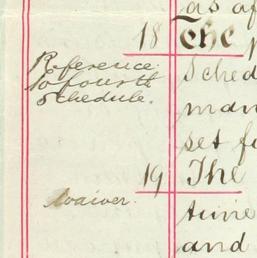 as af
18 The p
Reference
to fourth
Schedule.
Sched
man
set fo
19 The
waiver.
time
and